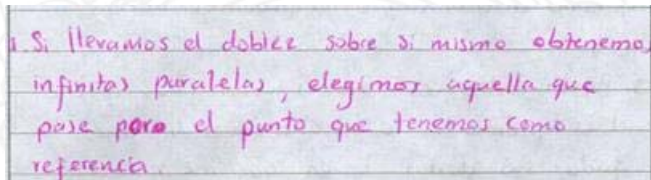 Si llevamos el doblez sobre si mismo obtenemos
infinitas paralelas, elegimos aquella que
pase por el punto que tenemos como
referencia.